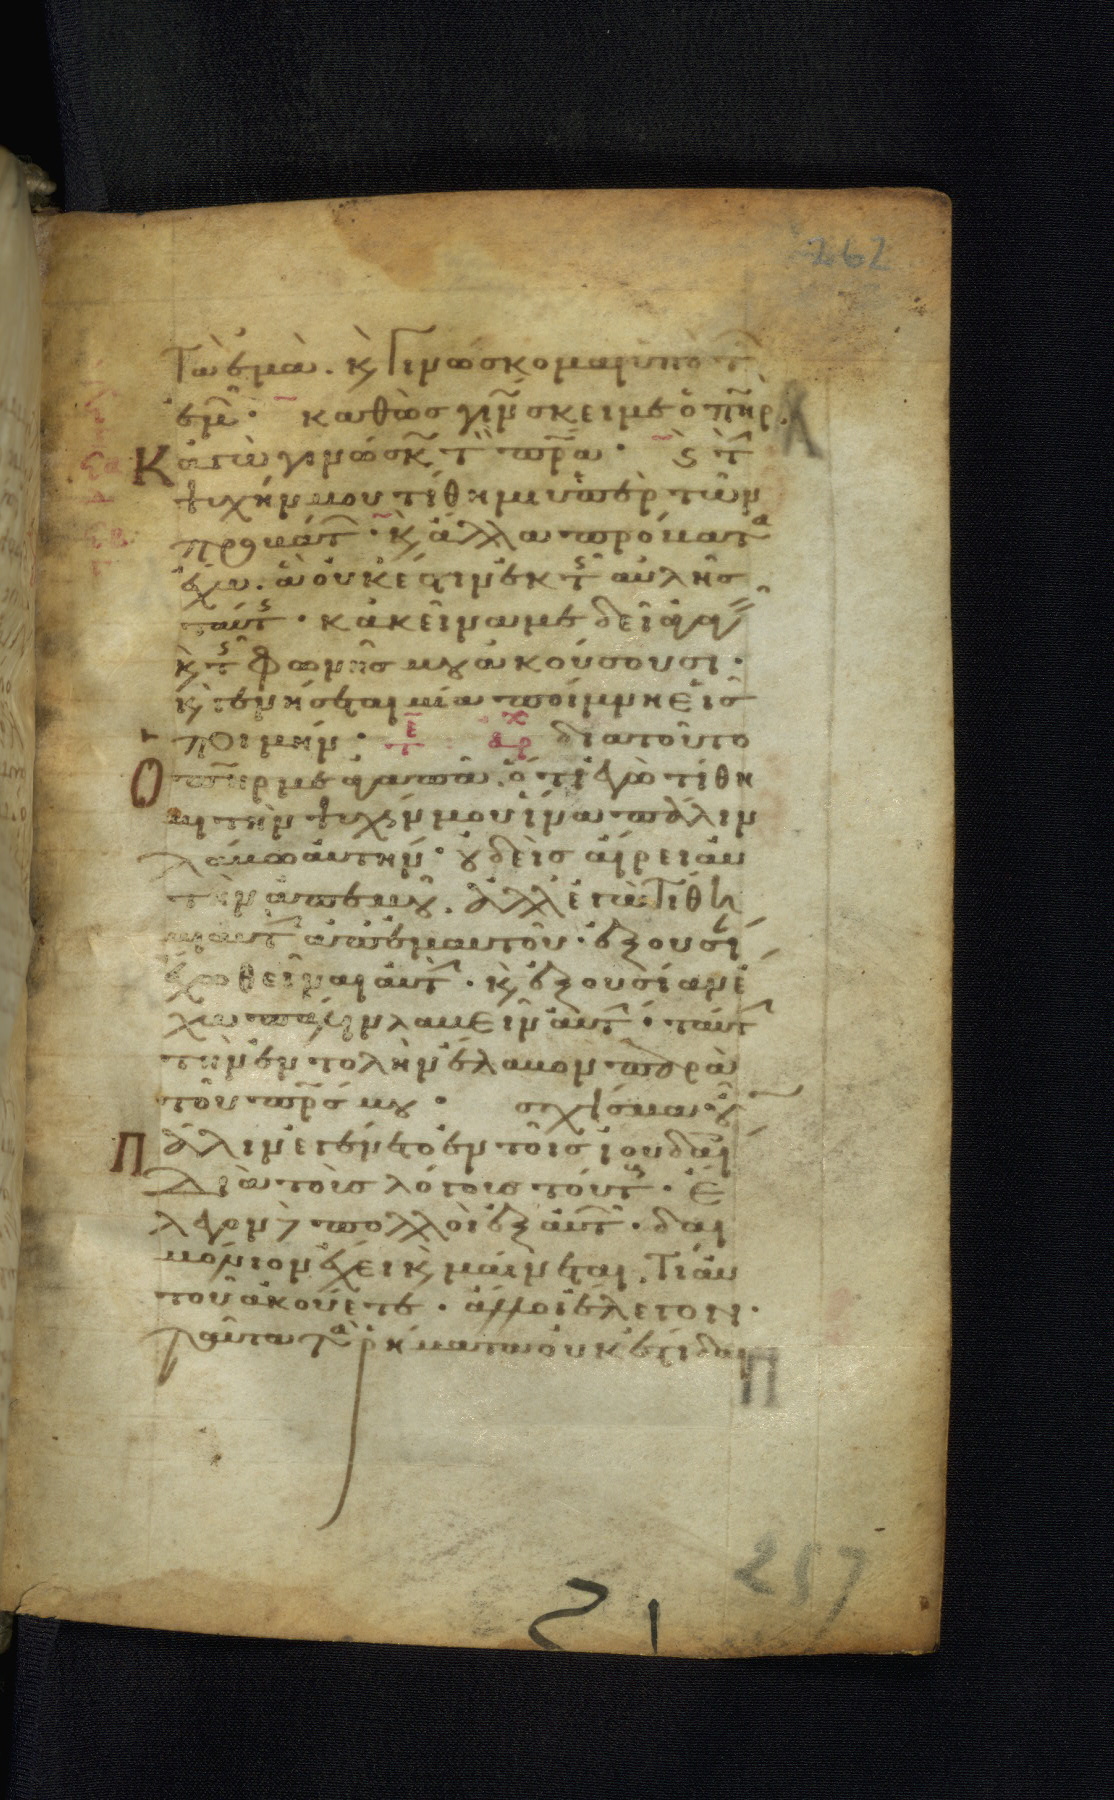 262
Τὰ ἐμὰ. κ(αὶ) Γινώσκομαι ὑπὸ τ(ῶν)
ἐμῶ(ν)· καθὼς γινώσκει με ὁ πηρ.
Κἀγὼ γινώσκ(ω) τ(ὸν) πρα· κ(αὶ) τ(ὴν)
ψυχήν μου τίθημι ὑπὲρ τῶν
προβάτ(ων)· κ(αὶ) ἄλλα πρόβατα
ἔχω. ἃ οὐκ ἔστιν ἐκ τ(ῆς) αὐλῆσ
ταύτ(ης)· κἀκεῖνα με δεῖ ἀγαγ(εῖν)
κ(αὶ) τ(ῆς) φωνῆσ μου ἀκούσουσι·
κ(αὶ) γενήσεται μία ποίμνη εἷσ
ποιμήν· τε αρχ διατοῦτο
Ὁ πηρ με ἀγαπᾶ. ὅτι ἐγὼ τίθη
μι τὴν ψυχήν μου ἵνα πάλιν
λάβω αὐτήν· οὐδεὶσ αἴρει αὐ
τὴν ἀπεμοῦ. ἀλλ ἐγὼ Τίθη
μι αὐτ(ὴν) ἀπεμαυτοῦ· ἐξουσί(αν)
ἔχω θεῖναι αὐτ(ήν)· κ(αὶ) ἐξουσίαν ἔ
χω πάλιν λαβεῖν αὐτ(ήν)· ταύτ(ην)
τὴν ἐντολὴν ἔλαβον παρὰ
τοῦ πρσ μου· σχίσμα οὖ(ν)
Πάλιν ἐγένετο ἐν τοῖσ ἰουδαί(οις)
διὰ τοὺσ λόγουσ τούτ(ους)· Ἔ
λεγον δὲ πολλοὶ ἐξ αὐτ(ῶν)· δαι
μόνιον ἔχει κ(αὶ) μαίνεται. Τί αὐ
τοῦ ἀκούετε· ἄλλοι ἔλεγον·
Ταῦτα τὰ ῥήματα οὐκ ἔστι δαι
257